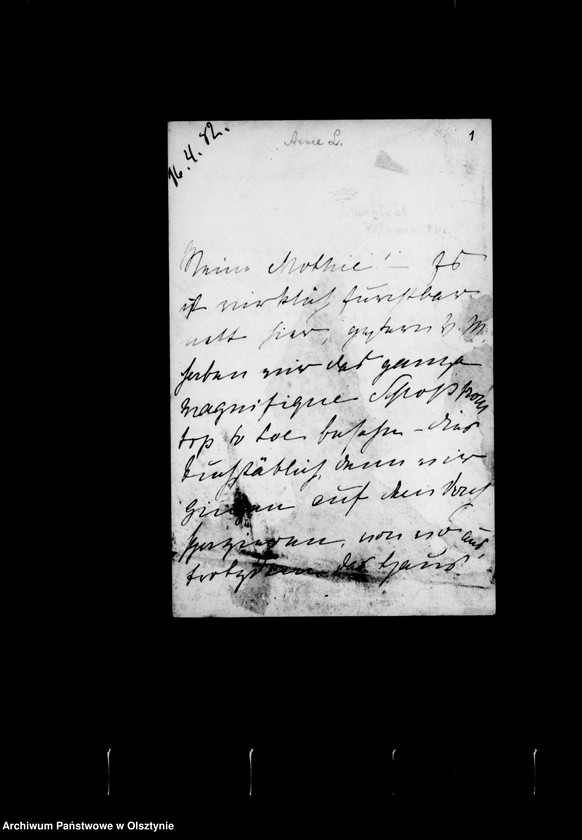 16.4.82.
Annie L.
1
Meine Mothie! – Es
ist wirklich furchtbar
nett hier, gestern V. M.
haben wir das ganze
magnifique Schloß from
top to toe besehen – dies
buchstäblich, denn wir
gingen auf dem Dach
spazieren, von wo aus,
trotzdem das Haus
Archiwum Państwowe w Olsztynie